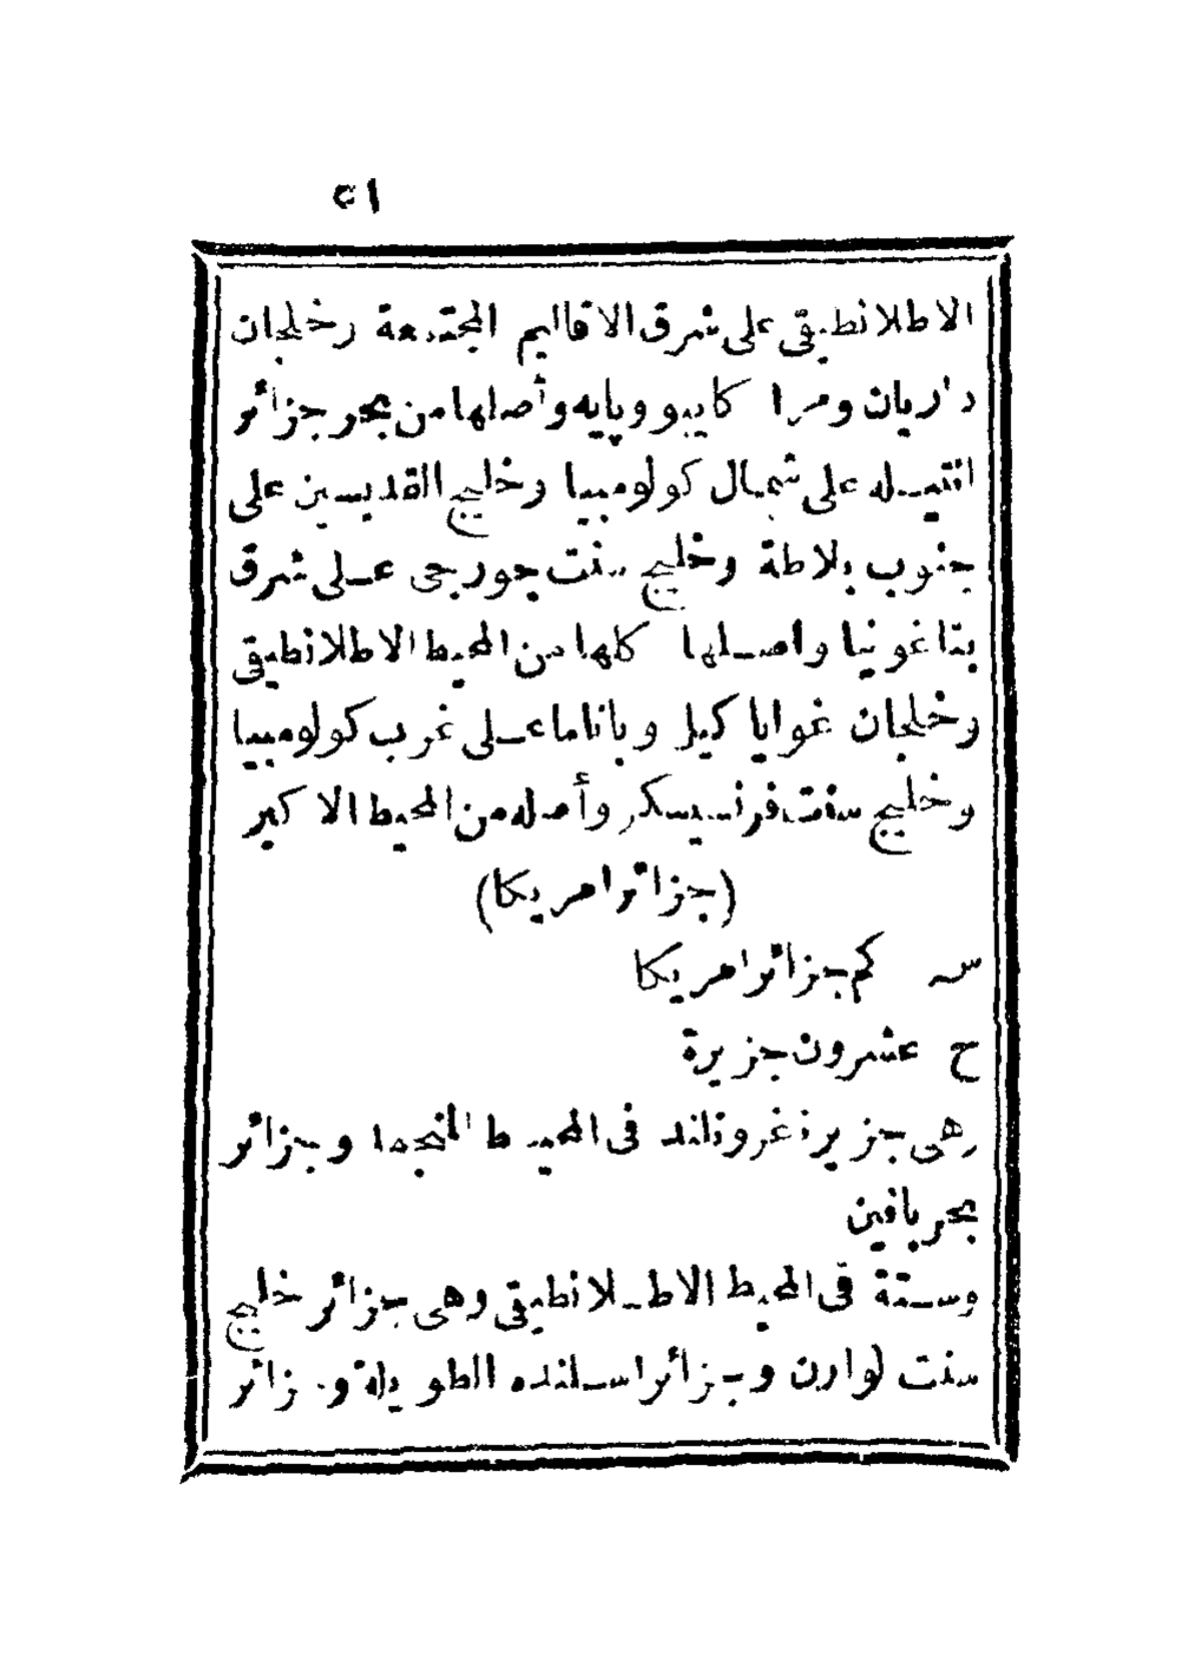 ٥١
الاطلانطيقى على شرق الاقاليم المجتمعة وخلجان
داريان ومرا كايبو وپايه وأصلها من بحر جزائر
انتيله على شمال كولومبيا وخليج القديسين على
جنوب بلاطة وخليج سنت جورجى على شرق
بتاغونيا واصلها كلها من المحيط الاطلانطيقى
وخلجان غوايا كيل وباناما على غرب كولومبيا
وخليج سنت فرنسيسكو وأصله من المحيط الاكبر
(جزائر امريكا)
س كم جزائر امريكا
ج عشرون جزيرة
وهى جزيرة غرونلند فى المحيط المنجمد وجزائر
بحر بافين
وستة فى المحيط الاطلانطيقى وهى جزائر خليج
سنت لوارن وجزائر اسلنده الطويلة وجزائر